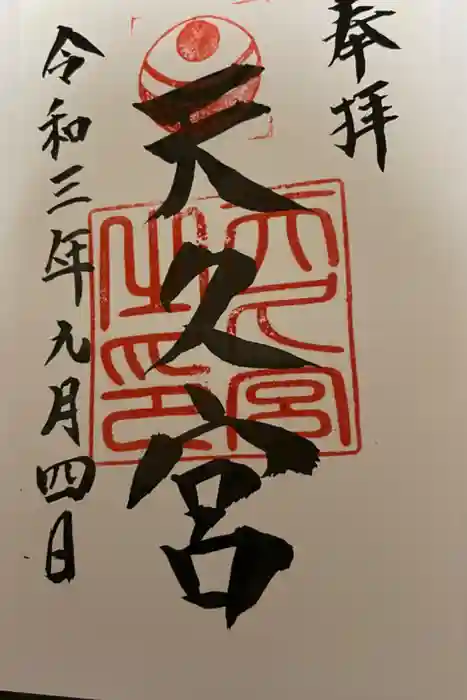 奉拝
天久宮
天久宮之印
令和三年九月四日